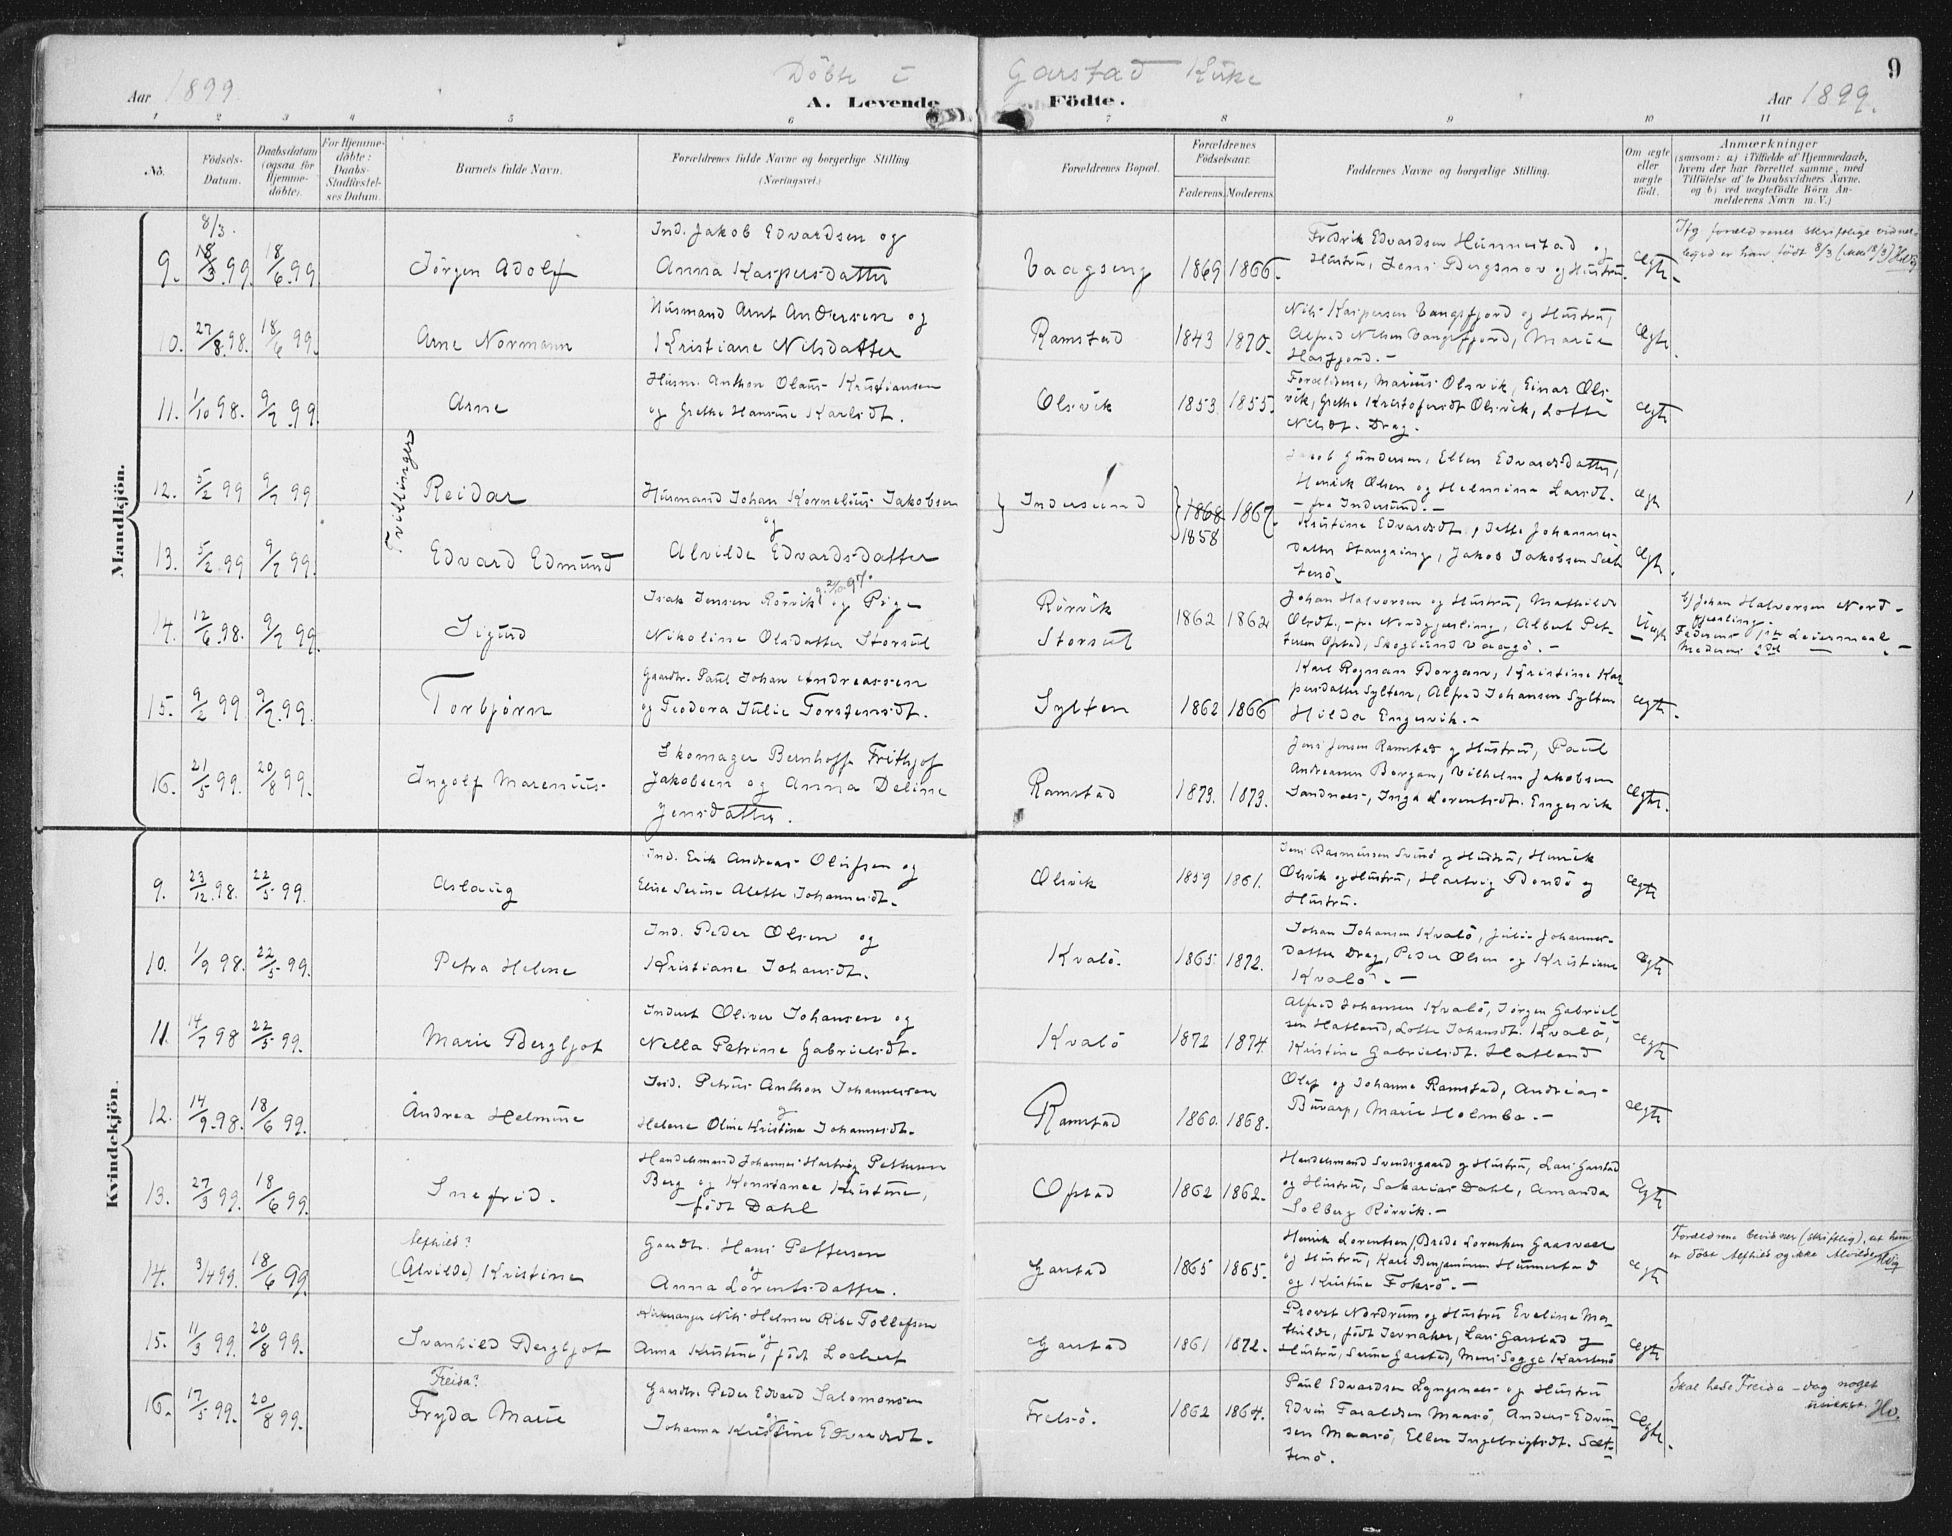 9
Döbte i Garstad Kirke
Aar 1899.
A. Levende Födte.
Aar 1899.
1 2 3 4 5 6 7 8 9 10 11
No.
Födsels-Datum.
Daabsdatum (ogsaa for Hjemmedöbte).
For Hjemmedöbte: Daabs-Stadfæstelses Datum.
Barnets fulde Navn.
Forældrenes fulde Navne og borgerlige Stilling
(Næringsvei.)
Forældrenes Bopæl.
Forældrenes Födselsaar.
Faderens. Moderens.
Faddernes Navne og borgerlige Stilling.
Om ægte eller uægte födt.
Anmærkninger
(saasom: a) i Tilfælde af Hjemmedaab,
hvem der har forrettet samme, med
Tilföielse af to Daabsvidners Navne,
og b) ved uægtefödte Börn An-
melderens Navn m. V.)
Mandkjön.
8/3.
9. 18/3 99. 18/6 99. Jörgen Adolf
Ind. Jakob Edvardsen og
Anna Kaspersdatter
Vaagseng 1869 1866.
Fredrik Edvardsen Hunnestad og
Hustru, Jens Bergsnov og Hustru.
Ægte.
Ifg forældrenes skriftlige vidnes-
byrd er han født 8/3 (ikke 18/3)
10. 27/8 98. 18/6 99. Arne Normann
Husmand Arnt Andersen og
Kristiane Nilsdatter
Ramstad 1843 1870.
Nils Kaspersen Vangsfjord og Hustru,
Alfred Nilsen Vangsfjord, Marie
Horsfjord.-
Ægte.
11. 1/10 98. 9/7 99. Arne
Husm. Anthon Olaus Kristiansen
og Grethe Hansine Karlsdt.
Olsvik 1853. 1855.
Forældrene, Marius Olsvik, Einar Ols-
vik, Grethe Kristofersdt Olsvik, Lotte
Nilsdt. Drag.
Ægte
Tvillinger
12. 5/2 99 9/7 99 Reidar
Husmand Johan Kornelius Jakobsen
og
Indersund 1868 1867.
1858
Jakob Gundersen, Ellen Edvardsdatter,
Henrik Olsen og Helmina Larsdt.
- fra Indersund.-
Ægte
13. 5/2 99 9/7 99. Edvard Edmund
Alvilde Edvardsdatter
Kristine Edvardsdt, Jette Johannes-
datter Stangring, Jakob Jakobsen Sæt-
ternö.
Ægte.
14. 12/6 98. 9/7 99. Sigurd
Isak Jensen Rörvik og Pige
Nikoline Olsdatter Storsul
Rörvik
Storsul
1862 1862
Johan Halvorsen og Hustru, Mathilde
Olsdt.,- fra Nordgjæsling, Albert Pet-
tersen Opstad, Skoglund Vaagö.-
Uægte
b) Johan Halvorsen Nord-
gjæsling.
Faderens 1ste Leiermaal
Moderens 2det — .-
15. 9/2 99 9/7 99. Torbjörn
Gaardbr. Paul Johan Andreassen
og Teodora Julie Torstensdt.
Sylten 1862 1866
Karl Rognan Borgan, Kristine Kas-
persdatter Sylten, Alfred Johansen Sylten
Hilda Engesvik.-
Ægte.
16. 21/5 99. 20/8 99. Ingolf Marenius
Skomager Bernhoff Frithjof
Jakobsen og Anna Deline
Jensdatter.
Ramstad 1873. 1873.
Jens Jensen Ramstad og Hustru, Paul
Andreasen Borgan, Vilhelm Jakobsen
Sandnæs, Inga Lorentsdt. Engesvik
Ægte.
Kvindekjön.
9. 23/12 98. 22/5 99. Aslaug
Ind. Erik Andreas Olufsen og
Elise Serine Alette Johannesdt.
Olsvik 1859 1861.
Jens Rasmussen Svinö og Hustru, Henrik
Olsvik og Hustru, Hartvig Bondö og
Hustru.
Ægte
10. 1/9 98. 22/5 99. Petra Helene
Ind. Peder Olsen og
Kristiane Johansdt.
Kvalö. 1865 1872.
Johan Johansen Kvalö, Julie Johannes-
datter Drag, Peder Olsen og Kristiane
Kvalö.-
Ægte
11. 14/7 98 22/5 99. Marie Bergljot
Inderst Oliver Johansen og
Nella Petrine Gabrielsdt.
Kvalö 1872 1874.
Alfred Johansen Kvalö, Jörgen Gabriel-
sen Hatland, Lotte Johansdt. Kvalö,
Kristine Gabrielsdt. Hatland
Ægte
12. 14/9 98. 18/6 99. Andrea Helmine
Ind. Petrus Anthon Johannessen
og
Helene Oline Kristine Johannesdt.
Ramstad 1860. 1868.
Olaf og Johanne Ramstad, Andreas
Buvarp, Marie Holmbo.-
Ægte
13. 27/3 99. 18/6 99. Snefrid.
Handelsmand Johannes Hartvig Pettersen
Berg og Konstance Kristine,
født Dahl
Opstad 1862 1862.
Handelsmand Svendsgaard og Hustru, Lars Garstad
og Hustru, Sakarias Dahl, Amanda
Solberg Rörvik.-
Ægte
Alfhild?
14. 3/4 99. 18/6 99. (Alvilde) Kristine
Gaardbr. Hans Pettersen
og
Anna Lorentsdatter.
Garstad 1865 1865.
Henrik Lorentsen, Brede Lorentsen Gaasvaer
og Hustru, Karl Benjaminsen Hunnestad
og Kristine Foksö.-
Ægte
Forældrene bevidner (skriftlig), at hun
er døbt Alfhild og ikke Alvilde
15. 11/3 99. 20/8 99. Svanhild Bergljot
Kirkesanger Nils Helmer Ribe Tollefsen
og
Anna Kristine, født Lochert
Garstad 1861 1872.
Provst Nordrum og Hustru Eveline Ma-
thilde, født Jevnaker, Lars Garstad og
Hustru, Serine Garstad, Mens Sogge Karstenö
Ægte
Freida?
16. 17/5 99. 20/8 99. Fryda Marie
Gaardbr Peder Edvard Salomonsen
og
Johanna Kristine Edvardsdt.
Frelsö. 1862 1864.
Paul Edvardsen Lyngsnæs og Hustru
Edvin Faraldsen Maasö, Anders Edvin-
sen Maasö, Ellen Ingebrigtsdt. Sæt-
ternö.
Ægte.
Skal hede Freida - dog noget
usikkert. Hv.